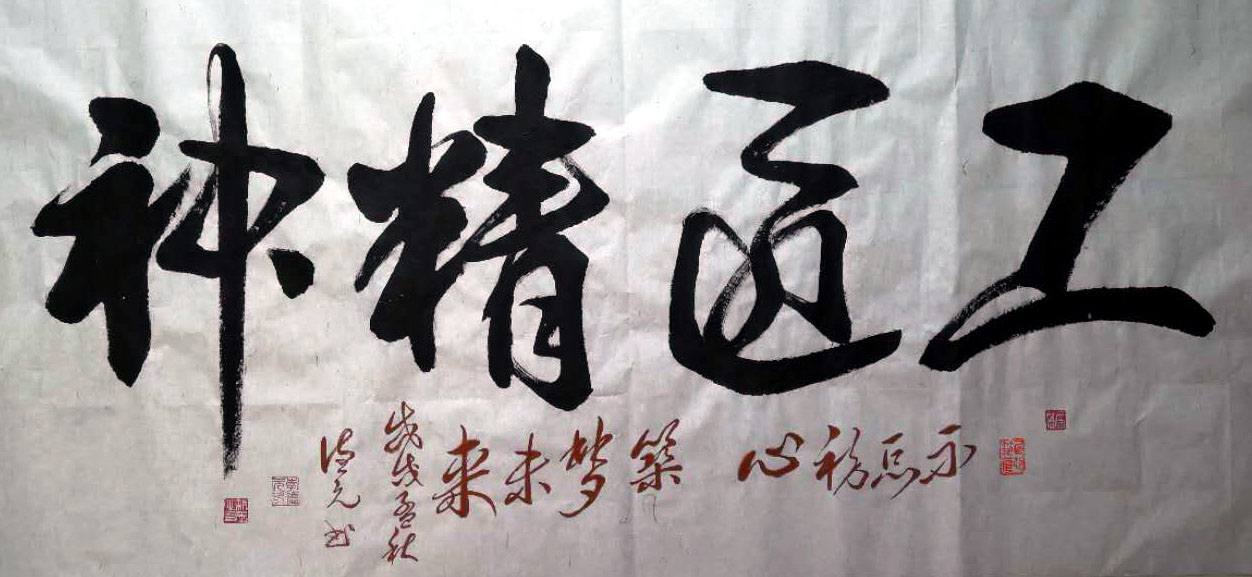 工匠精神
不忘初心 築梦未来
戊戌孟秋
德元书